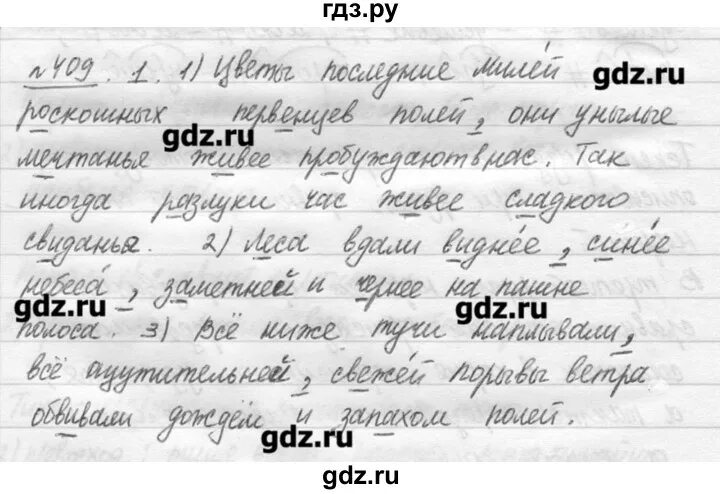 гдз.ру
№409. 1. 1) Цветы последние милей
gdz.ru
роскошных первенцев полей, они унылые
gdz.ru
мечтанья живее пробуждают в нас. Так
иногда разлуки час живее сладкого
свиданья. 2) Леса вдали виднее, синее
небеса, заметней и чернее на пашне
gdz.ru
gdz.ru
полоса. 3) Всё ниже тучи наплывали,
всё ощутительней, свежей порывы ветра
обвивали дождём и запахом полей.
gdz.ru
gdz.ru